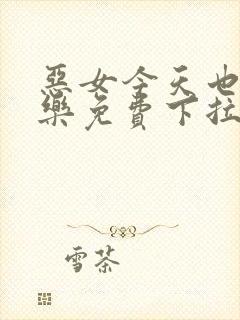 惡女今天也
樂免費下拉
雪茶